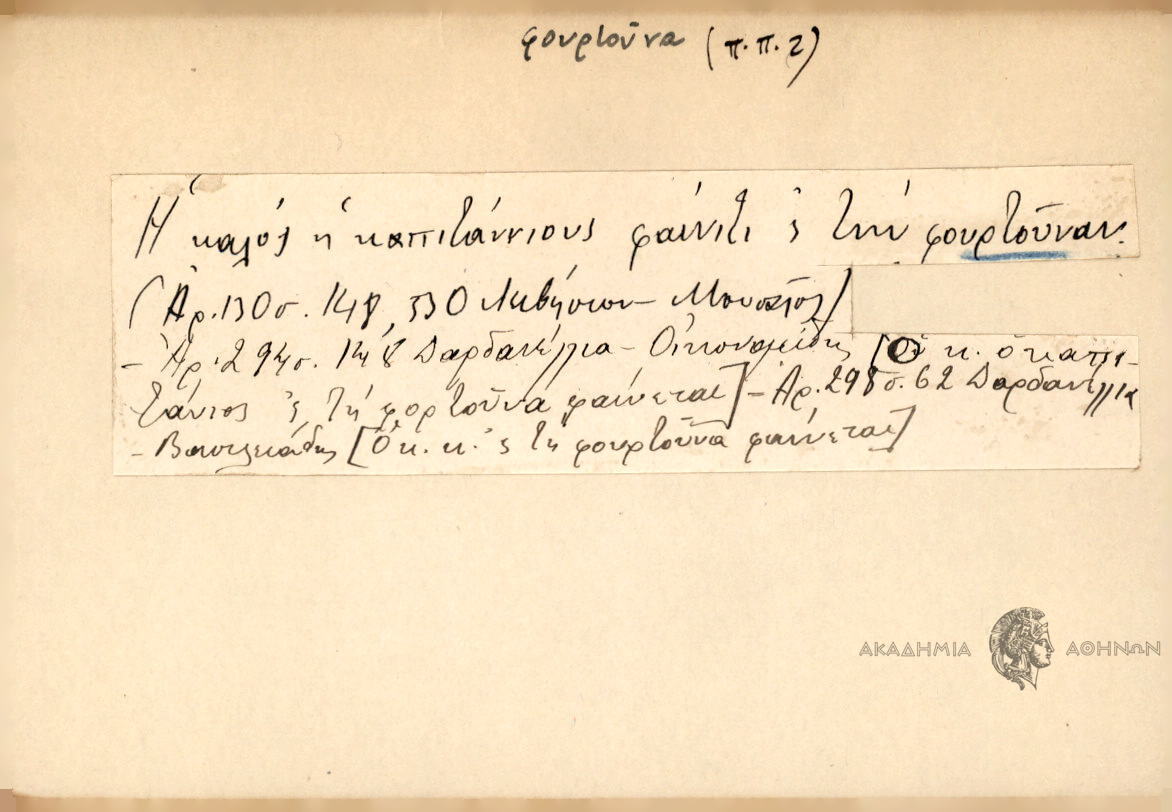 φουρτοῦνα (π.π. 2)
Ἡ καλός ἡ καπιτάννιους φαίνιτι 'ς τήν φουρτοῦναν.
(Ἀρ. 130 σ. 148, 330 Λιβήσιον - Μουσαῖος)
- Ἀρ. 294 σ. 148 Δαρδανέλλια - Οἰκονομίδης [Ὁ κ. ὁ καπι-
τάνιος 'ς τή φορτοῦνα φαίνεται] - Ἀρ. 298 σ. 62 Δαρδανέλλια
- Βασιλειάδης [Ὁ κ. κ. 'ς τή φουρτοῦνα φαίνεται]
ΑΚΑΔΗΜΙΑ ΑΘΗΝΩΝ